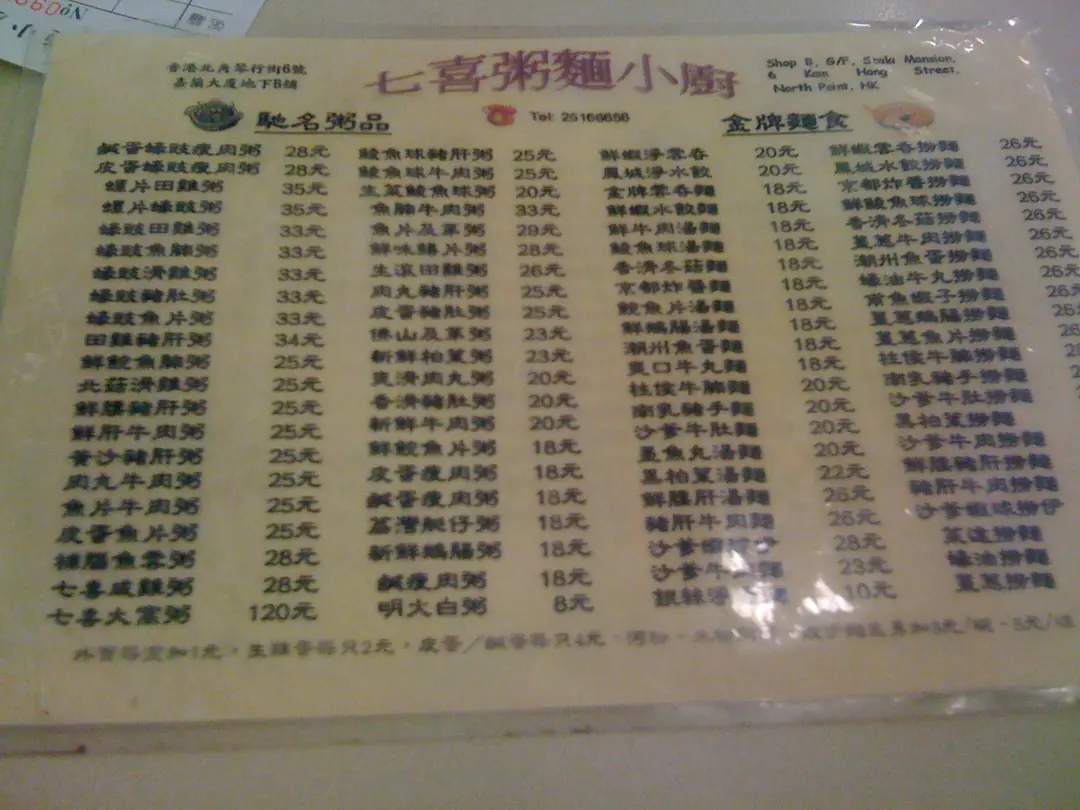 香港北角琴行街6號
嘉蘭大廈地下B舖
七喜粥麵小廚
Shop B, G/F, Scala Mansion,
6 Kam Hong Street,
North Point, HK
馳名粥品
Tel: 25166656
金牌麵食
鹹蛋蠔豉瘦肉粥 28元
皮蛋蠔豉瘦肉粥 28元
螺片田雞粥 35元
螺片蠔豉粥 35元
蠔豉田雞粥 33元
蠔豉魚腩粥 33元
蠔豉滑雞粥 33元
蠔豉豬肚粥 33元
蠔豉魚片粥 33元
田雞豬肝粥 34元
鮮鯇魚腩粥 25元
北菇滑雞粥 25元
鮮膶豬肝粥 25元
鮮肝牛肉粥 25元
黃沙豬肝粥 25元
肉丸牛肉粥 25元
魚片牛肉粥 25元
皮蛋魚片粥 25元
補腦魚雲粥 28元
七喜咸雞粥 28元
七喜大窩粥 120元
鯪魚球豬肝粥 25元
鯪魚球牛肉粥 25元
生菜鯪魚球粥 20元
魚腩牛肉粥 33元
魚片及第粥 29元
鮮味鷄片粥 28元
生滾田雞粥 26元
肉丸豬肝粥 25元
皮蛋豬肚粥 25元
佛山及第粥 23元
新鮮柏葉粥 23元
爽滑肉丸粥 20元
香滑豬肚粥 20元
新鮮牛肉粥 20元
鮮鯇魚片粥 18元
皮蛋瘦肉粥 18元
鹹蛋瘦肉粥 18元
荔灣艇仔粥 18元
新鮮鵝腸粥 18元
鹹瘦肉粥 18元
明火白粥 8元
鮮蝦淨雲吞 20元
鳳城淨水餃 20元
金牌雲吞麵 18元
鮮蝦水餃麵 18元
鮮牛肉湯麵 18元
鯪魚球湯麵 18元
香滑冬菇麵 18元
京都炸醬麵 18元
鯇魚片湯麵 18元
鮮鵝腸湯麵 18元
潮州魚蛋麵 18元
爽口牛丸麵 18元
柱侯牛腩麵 20元
南乳豬手麵 20元
沙爹牛肚麵 20元
墨魚丸湯麵 20元
黑柏葉湯麵 22元
鮮膶肝湯麵 26元
豬肝牛肉麵 26元
沙爹蝦球伊 28元
沙爹牛肉麵 23元
銀絲淨湯麵 10元
鮮蝦雲吞撈麵 26元
鳳城水餃撈麵 26元
京都炸醬撈麵 26元
鮮鯪魚球撈麵 26元
香滑冬菇撈麵 26元
薑蔥牛肉撈麵 26元
潮州魚蛋撈麵 26元
蠔油牛丸撈麵 26
柴魚蝦子撈麵
薑蔥鵝腸撈麵
薑蔥魚片撈麵
柱侯牛腩撈麵
南乳豬手撈麵
沙爹牛肚撈麵
黑柏葉撈麵
沙爹牛肉撈麵
鮮膶豬肝撈麵
豬肝牛肉撈麵
沙爹蝦球撈伊
菜遠撈麵
蠔油撈麵
薑蔥撈麵
外賣每盒加1元，生雞蛋每只2元，皮蛋／鹹蛋每只4元，河粉、米粉